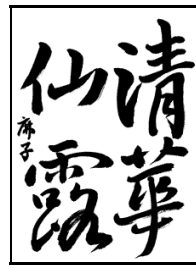 清華
仙露
麻子